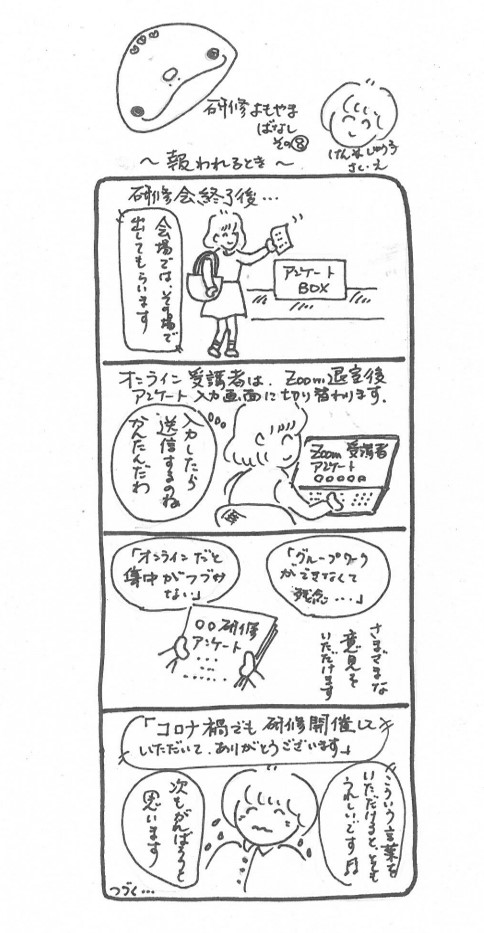 研修よもやま
ばなし
その⑧
けんしゅう子
さくえ
～ 報われるとき ～
研修会終了後…
会場では、その場で
出してもらいます
アンケート
BOX
オンライン受講者は、Zoom退室後
アンケート入力画面に切り替わります。
入力したら
送信するのね
かんたんだわ
Zoom 受講者
アンケート
「グループワーク
ができなくて
残念…」
「オンラインだと
集中がつづけ
ない」
○○研修
アンケート
さまざまな
意見を
いただけます
「コロナ禍でも 研修開催して
いただいて、ありがとうございます」
こういう言葉を
いただけると、とても
うれしいです♬
次もがんばろうと
思います
つづく…